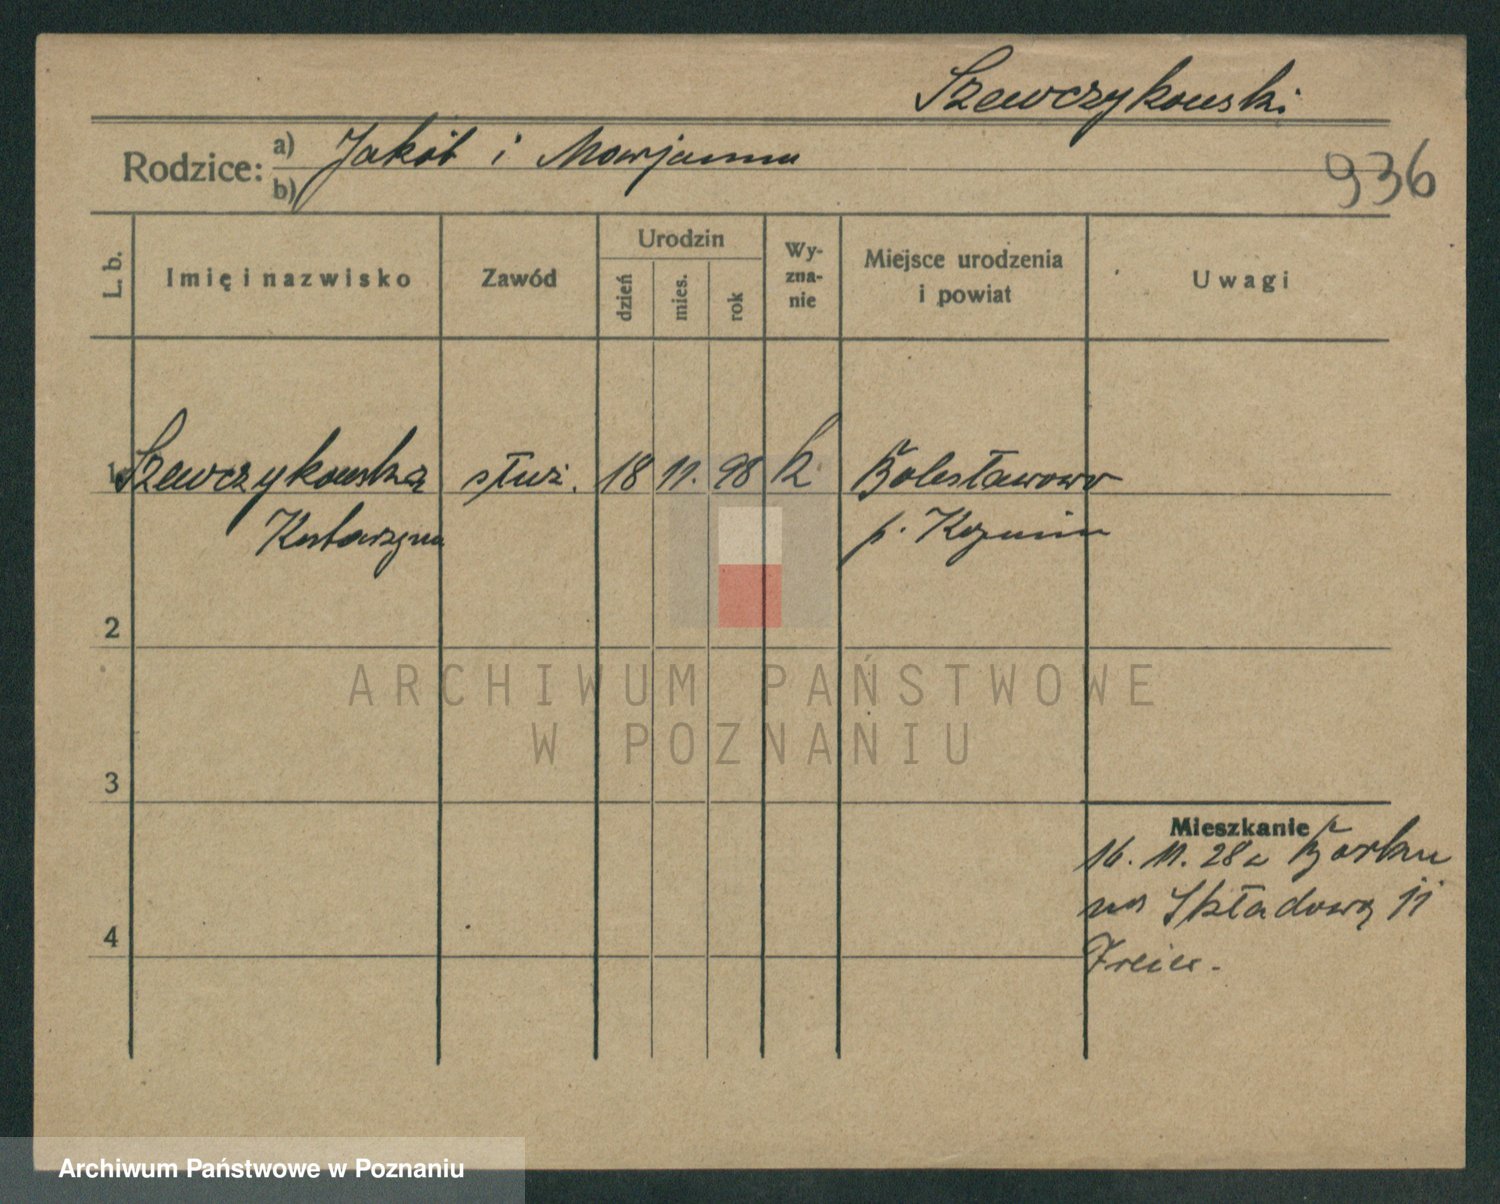 Szewczykowski
Rodzice: a) Jakób i Marjanna
b)
936
L. b.
Imię i nazwisko
Zawód
Urodzin
dzień
mies.
rok
Wy-
zna-
nie
Miejsce urodzenia
i powiat
Uwagi
1 Szewczykowska służ. 18 11. 98 k Bolesławowo
Katarzyna p. Kozmin
2
3
4
Mieszkanie
16. 11. 28 z
na Składową 11
ARCHIWUM PAŃSTWOWE
W POZNANIU
Archiwum Państwowe w Poznaniu